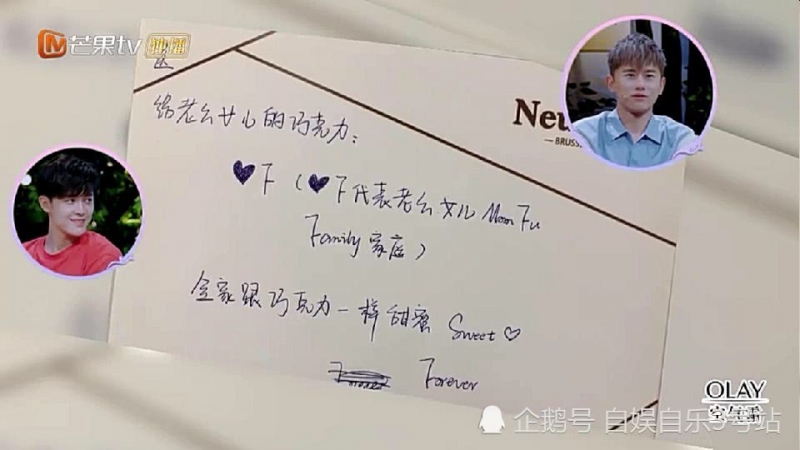 芒果tv 独播
给老公女儿的巧克力:
Neu
BRUSS
♥F (♥F代表老公女儿 Mom Fu
Family 家庭)
全家跟巧克力一样甜蜜 Sweet♡
Forever
OLAY
空气霜
企鹅号 自娱自乐5号站